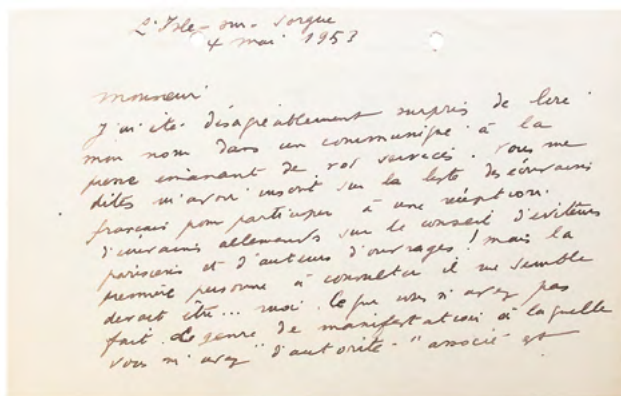 L'Isle-sur-Sorgue
4 mai 1953
Monsieur
J'ai été désagréablement surpris de lire
mon nom dans un communiqué à la
presse émanant de vos services. Vous me
dites m'avoir inscrit sur la liste des écrivains
français pour participer à une réception
d'écrivains allemands sur le conseil d'éditeurs
parisiens et d'auteurs d'ouvrages ! mais la
première personne à consulter il me semble
devait être... moi. Ce que vous n'avez pas
fait. Le genre de manifestation à laquelle
vous m'avez "d'autorité" associé est